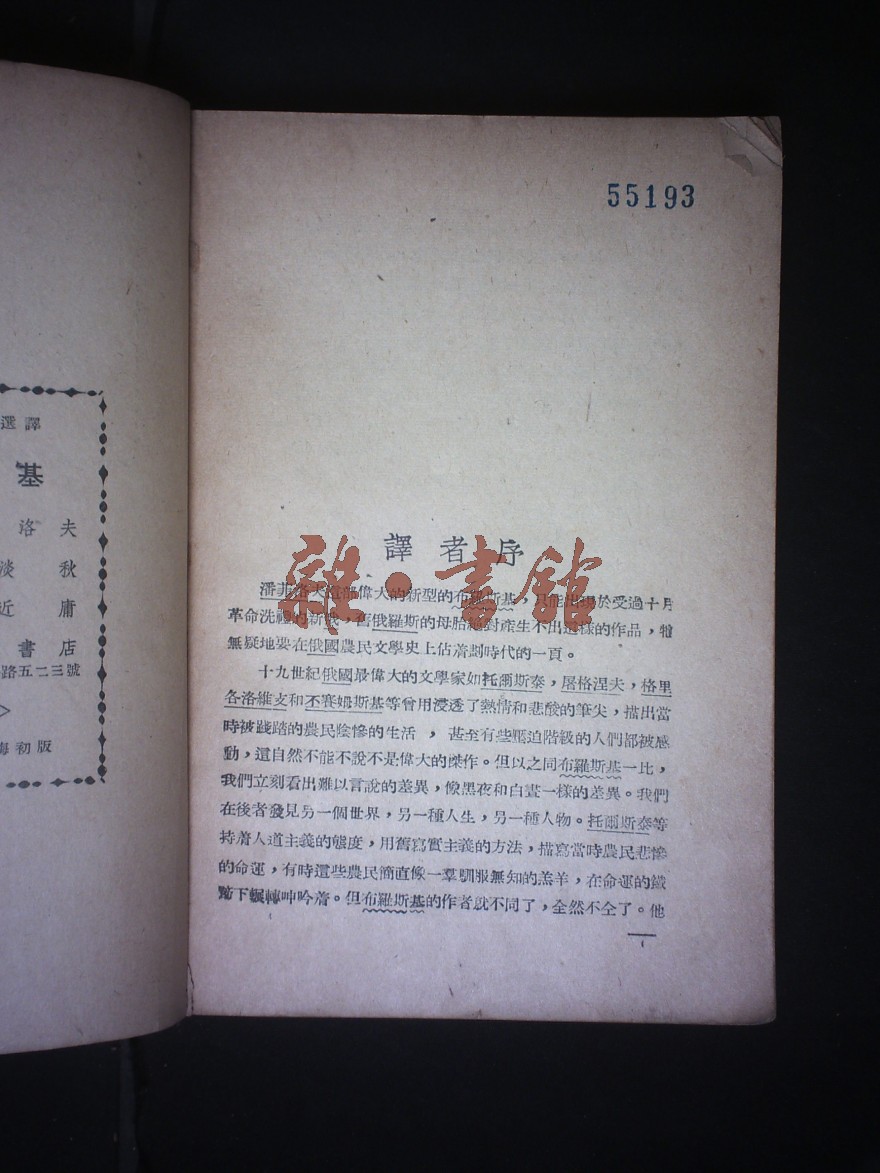 選譯
基
洛夫
淡秋
近庸
書店
路五二三號
海初版
55193
譯者序
雜·書館
潘菲洛夫這部偉大的新型的布羅斯基，只能出現於受過十月
革命洗禮的新俄，舊俄羅斯的母胎絕對產生不出這樣的作品，牠
無疑地要在俄國農民文學史上佔着劃時代的一頁。
十九世紀俄國最偉大的文學家如托爾斯泰，屠格涅夫，格里
各洛維支和丕賽姆斯基等曾用浸透了熱情和悲酸的筆尖，描出當
時被踐踏的農民陰慘的生活，甚至有些壓迫階級的人們都被感
動，這自然不能不說不是偉大的傑作。但以之同布羅斯基一比，
我們立刻看出難以言說的差異，像黑夜和白晝一樣的差異。我們
在後者發見另一個世界，另一種人生，另一種人物。托爾斯泰等
持着人道主義的態度，用舊寫實主義的方法，描寫當時農民悲慘
的命運，有時這些農民簡直像一羣馴服無知的羔羊，在命運的鐵
蹄下輾轉呻吟着。但布羅斯基的作者就不同了，全然不仝了。他
1